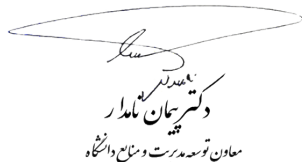 دکتر پیمان نامدار
معاون توسعه مدیریت و منابع دانشگاه